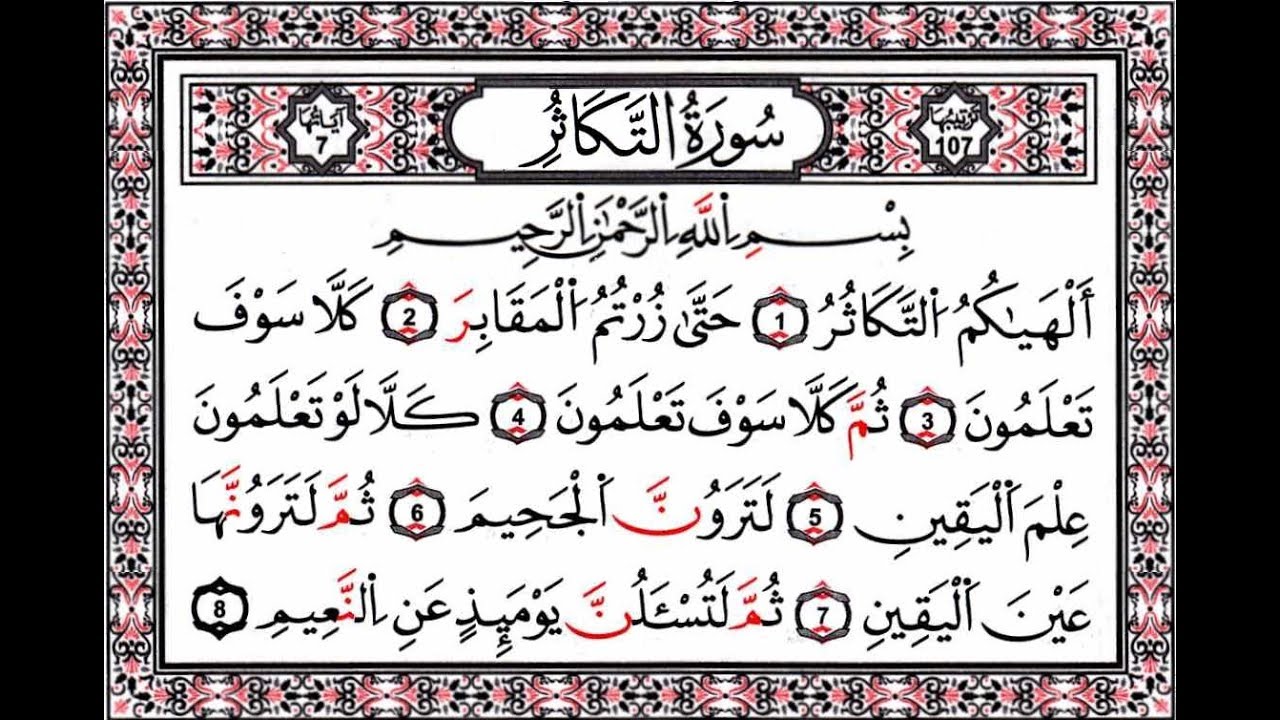 ترتيبها 107
سُورَةُ التَّكَاثُرِ
آيَاتُهَا 7
بِسْمِ اِللَّهِ اِلرَّحْمَٰنِ اِلرَّحِيمِ
أَلْهَيٰكُمُ اُلتَّكَاثُرُ 1 حَتَّىٰ زُرْتُمُ اُلْمَقَابِرَ 2 كَلَّا سَوْفَ
تَعْلَمُونَ 3 ثُمَّ كَلَّا سَوْفَ تَعْلَمُونَ 4 كَلَّا لَوْ تَعْلَمُونَ
عِلْمَ اَلْيَقِينِ 5 لَتَرَوُنَّ اَلْجَحِيمَ 6 ثُمَّ لَتَرَوُنَّهَا
عَيْنَ اَلْيَقِينِ 7 ثُمَّ لَتُسْـَٔلُنَّ يَوْمَئِذٍ عَنِ اِلنَّعِيمِ 8